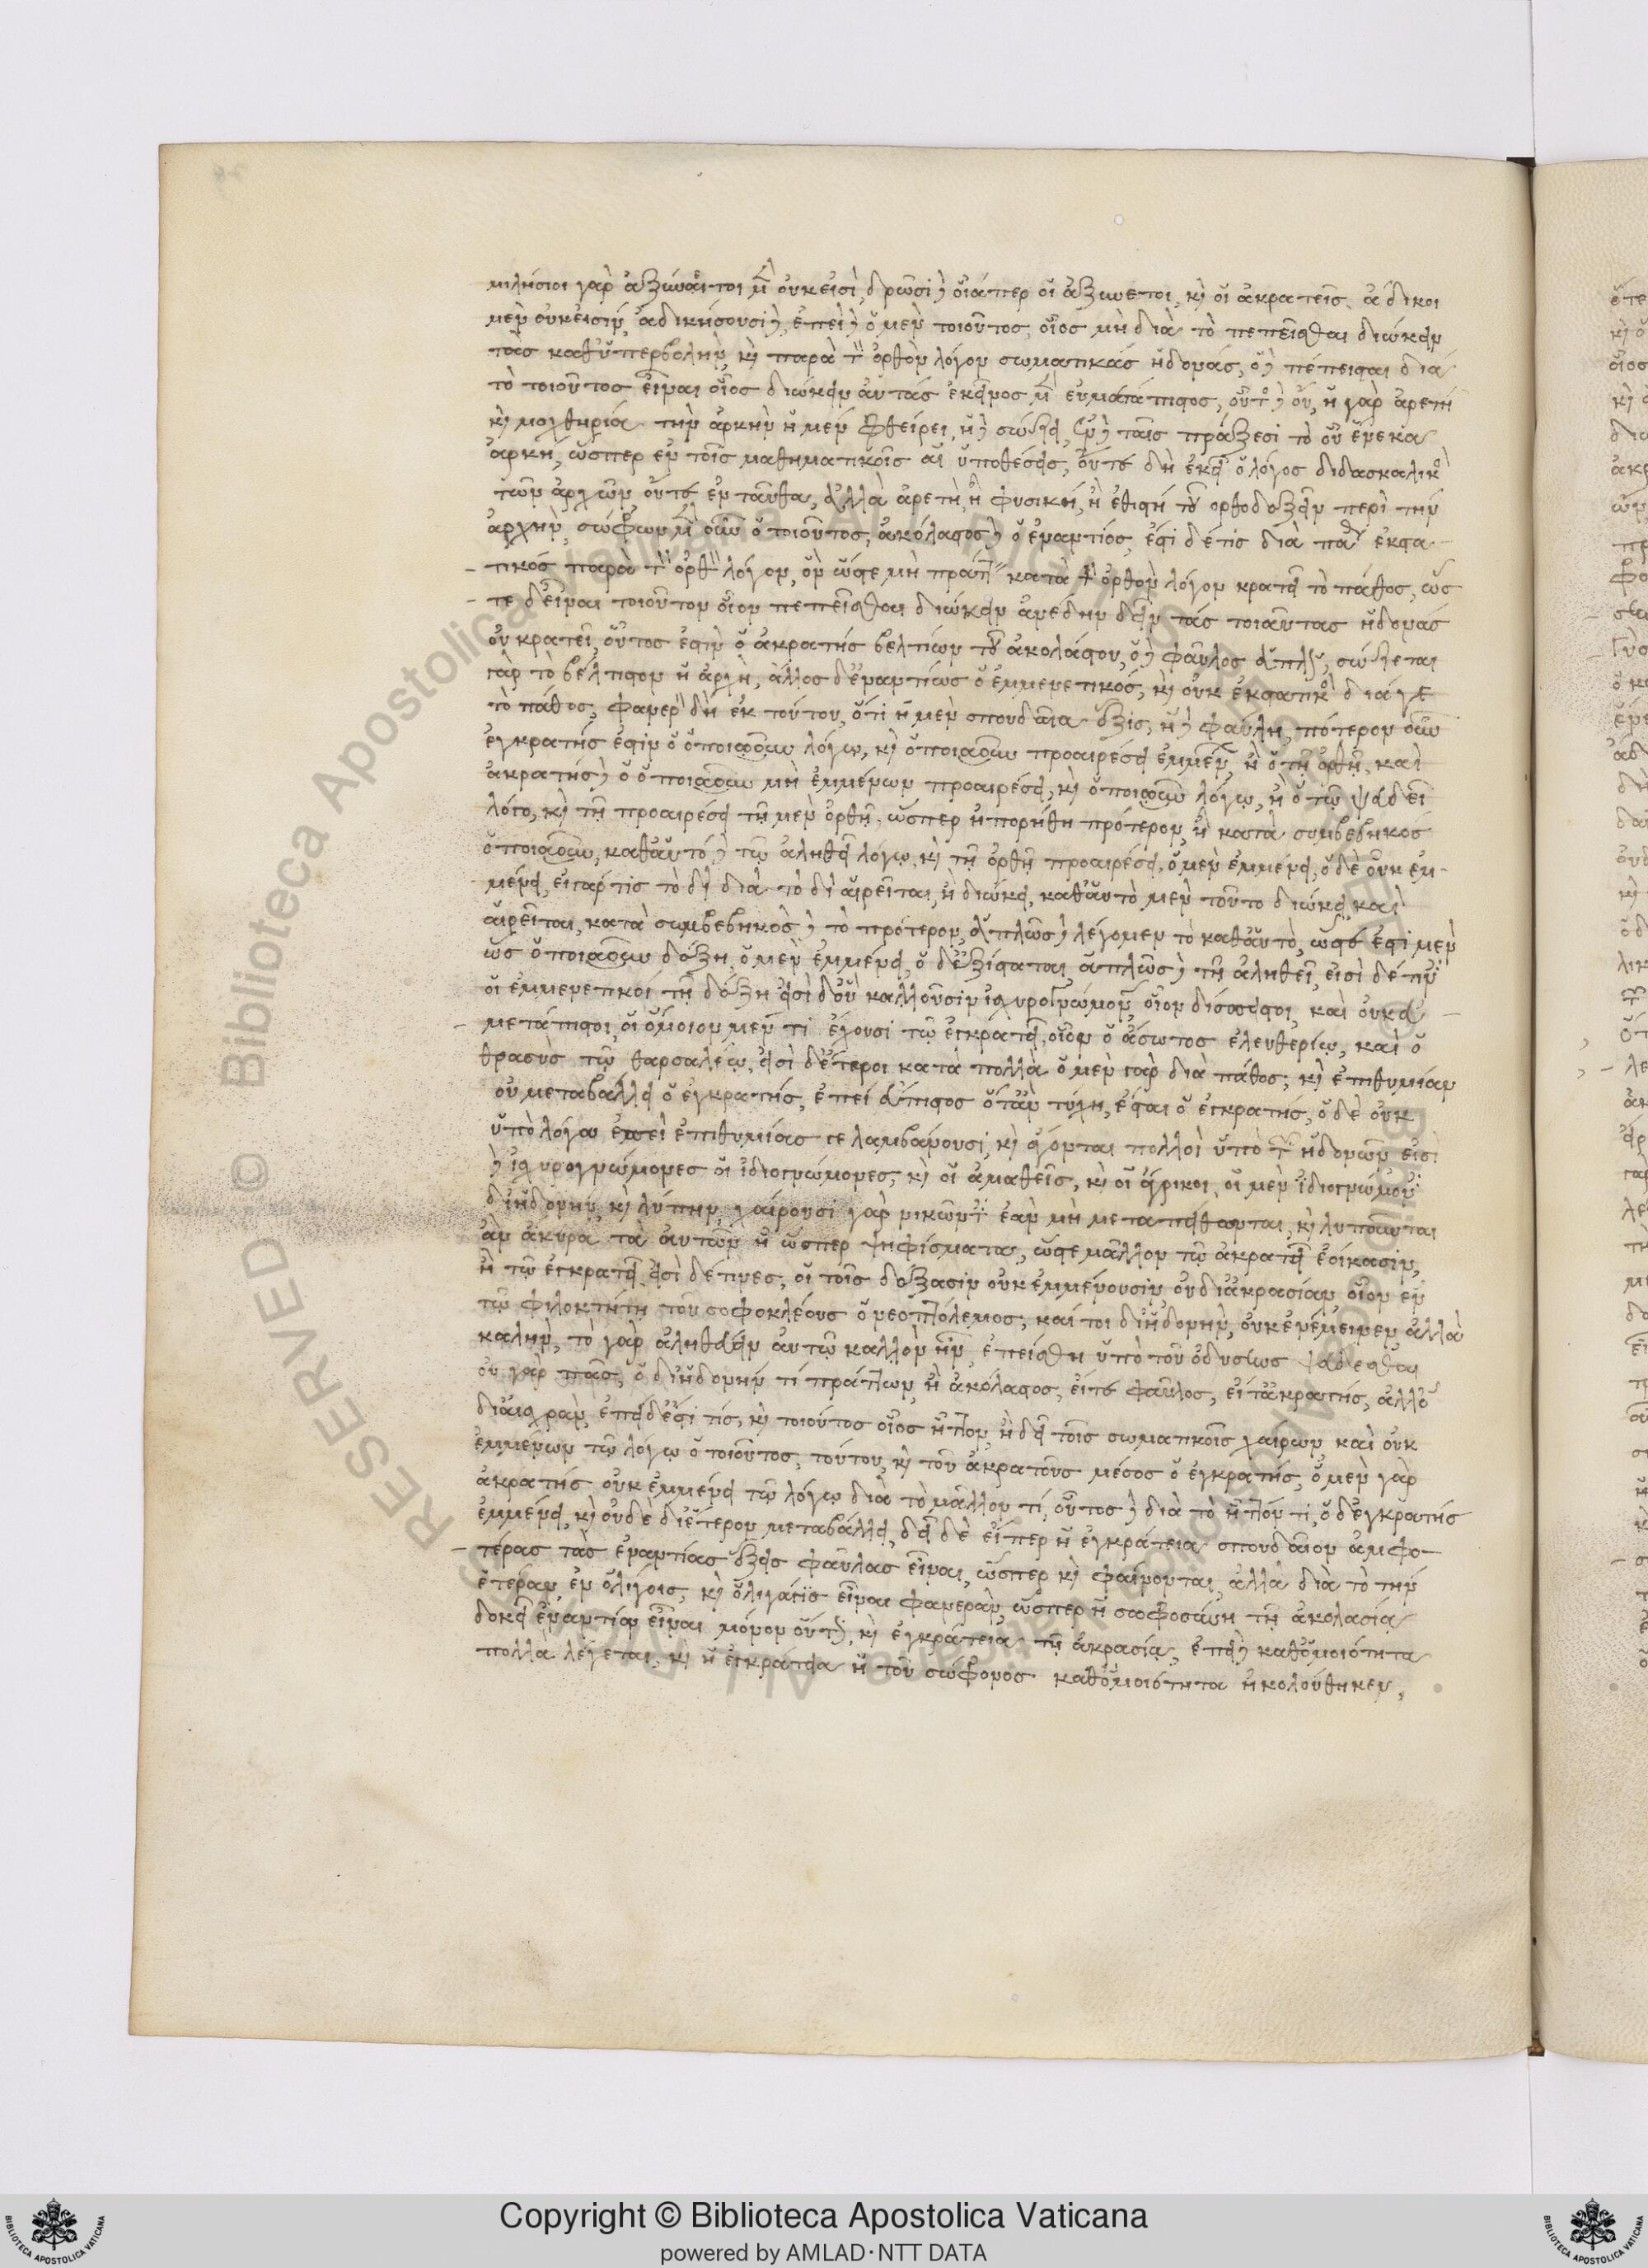 μιλήσιοι γὰρ ἀξύνετοι μὲν οὐκ εἰσὶ, δρῶσι δὲ οἷάπερ οἱ ἀξύνετοι, καὶ οἱ ἀκρατεῖς ἄδικοι
μὲν οὐκ εἰσὶν, ἀδικήσουσι δὲ, ἐπεὶ δὲ ὁ μὲν τοιοῦτος, οἷος μὴ διὰ τὸ πεπεῖσθαι διώκειν
τὰς καθ' ὑπερβολὴν, καὶ παρὰ τὸν ὀρθὸν λόγον σωματικὰς ἡδονάς, ὁ δὲ πέπεισται διὰ
τὸ τοιοῦτος εἶναι οἷος διώκειν αὐτάς ἐκεῖνος μὲν εὐμετάπειστος, οὗτος δὲ οὔ, ἡ γὰρ ἀρετὴ
καὶ μοχθηρία τὴν ἀρχὴν ἡ μὲν φθείρει, ἡ δὲ σώζει, ἐν δὲ ταῖς πράξεσι τὸ οὗ ἕνεκα
ἀρχή, ὥσπερ ἐν τοῖς μαθηματικοῖς αἱ ὑποθέσεις, οὔτε δὴ ἐκεῖ ὁ λόγος διδασκαλικὸς
τῶν ἀρχῶν οὔτε ἐνταῦθα, ἀλλὰ ἀρετὴ, ἢ φυσικὴ, ἢ ἐθιστὴ τοῦ ὀρθοδοξεῖν περὶ τὴν
ἀρχήν, σώφρων μὲν οὖν ὁ τοιοῦτος, ἀκόλαστος δὲ ὁ ἐναντίος, ἔστι δέ τις διὰ πάθος ἐκστα
τικός παρὰ τὸν ὀρθὸν λόγον, ὃν ὥστε μὴ πράττειν κατὰ τὸν ὀρθὸν λόγον κρατεῖ τὸ πάθος, ὥσ
τε δ' εἶναι τοιοῦτον οἷον πεπεῖσθαι διώκειν ἀνέδην δεῖν τὰς τοιαύτας ἡδονάς
οὐ κρατεῖ, οὗτος ἐστὶν ὁ ἀκρατὴς βελτίων τοῦ ἀκολάστου, οὐδὲ φαῦλος ἁπλῶς, σώζεται
γὰρ τὸ βέλτιστον ἡ ἀρχὴ, ἄλλος δ' ἐναντίως ὁ ἐμμενετικός, καὶ οὐκ ἐκστατικὸς διά γε
τὸ πάθος, φανερὸν δὴ ἐκ τούτου, ὅτι ἡ μὲν σπουδαία ἕξις, ἡ δὲ φαύλη, πότερον οὖν
ἐγκρατής ἐστιν ὁ ὁποιῳοῦν λόγῳ, καὶ ὁποιᾳοῦν προαιρέσει ἐμμένων, ἢ ὁ τῇ ὀρθῇ, καὶ
ἀκρατὴς δὲ ὁ ὁποιᾳοῦν μὴ ἐμμένων προαιρέσει, καὶ ὁποιῳοῦν λόγῳ, ἢ ὁ τῷ ψευδεῖ
λόγῳ, καὶ τῇ προαιρέσει τῇ μὲν ὀρθῇ. ὥσπερ ἠπορήθη πρότερον, ἢ κατὰ συμβεβηκὸς
ὁποιᾳοῦν, καθ' αὑτό δὲ τῷ ἀληθεῖ λόγῳ, καὶ τῇ ὀρθῇ προαιρέσει, ὁ μὲν ἐμμένει, ὁ δὲ οὐκ ἐμ
μένει, εἰ γάρ τις τὸ δὶ διὰ τὸ δὶ αἱρεῖται, ἢ διώκει, καθ' αὑτὸ μὲν τοῦτο διώκει καὶ
αἱρεῖται, κατὰ συμβεβηκὸς δὲ τὸ πρότερον, ἁπλῶς δὲ λέγομεν τὸ καθ' αὑτὸ, ὥστε ἔστι μὲν
ὡς ὁποιᾳοῦν δόξῃ, ὁ μὲν ἐμμένει, ὁ δ' ἐξίσταται ἁπλῶς δὲ τῇ ἀληθεῖ, εἰσὶ δέ τινες
οἱ ἐμμενετικοὶ τῇ δόξῃ εἰσὶ δ' οὓς καλοῦσιν ἰσχυρογνώμονας οἷον δύσπειστοι, καὶ οὐκ εὐ
μετάπιστοι, οἳ ὅμοιον μέν τι ἔχουσι τῷ ἐγκρατεῖ, οἷον ὁ ἄσωτος ἐλευθερίῳ, καὶ ὁ
θρασὺς τῷ θαρσαλέῳ, εἰσὶ δ' ἕτεροι κατὰ πολλὰ ὁ μὲν γὰρ διὰ πάθος, καὶ ἐπιθυμίαν
οὐ μεταβάλλει ὁ ἐγκρατής, ἐπεὶ εὔπιστος ὅταν τύχῃ, ἔσται ὁ ἐγκρατής, ὁ δὲ οὐχ
ὑπὸ λόγου ἐπεὶ ἐπιθυμίας γε λαμβάνουσι, καὶ ἄγονται πολλοὶ ὑπὸ τῶν ἡδονῶν εἰσὶ
δὲ ἰσχυρογνώμονες οἱ ἰδιογνώμονες, καὶ οἱ ἀμαθεῖς, καὶ οἱ ἄγροικοι, οἱ μὲν ἰδιογνώμονες
δι' ἡδονὴν, καὶ λύπην, χαίρουσι γὰρ νικῶντες ἐὰν μὴ μεταπείθωνται, καὶ λυποῦνται
ἂν ἄκυρα τὰ αὐτῶν ᾖ ὥσπερ ψηφίσματα, ὥστε μᾶλλον τῷ ἀκρατεῖ ἐοίκασιν,
ἢ τῷ ἐγκρατεῖ, εἰσὶ δέ τινες, οἳ τοῖς δόξασιν οὐκ ἐμμένουσιν οὐ δι' ἀκρασίαν οἷον ἐν
τῷ φιλοκτήτῃ τοῦ σοφοκλέους ὁ νεοπτόλεμος, καίτοι δι' ἡδονὴν, οὐκ ἐνέμεινεν ἀλλὰ
καλὴν, τὸ γὰρ ἀληθεύειν αὐτῷ καλλὸν ἦν, ἐπείσθη ὑπὸ τοῦ ὀδυσέως ψεύδεσθαι
οὐ γὰρ πᾶς, ὁ δι' ἡδονήν τι πράττων, ἢ ἀκόλαστος, εἴτε φαῦλος, εἴτ' ἀκρατής, ἀλλ' ὁ
δι' αἰσχράν, ἐπεὶ δ' ἔστι τις, καὶ τοιοῦτος οἷος ἧττον, ἢ δεῖ τοῖς σωματικοῖς χαίρων καὶ οὐκ
ἐμμένων τῷ λόγῳ ὁ τοιοῦτος, τούτου, καὶ τοῦ ἀκρατοῦς μέσος ὁ ἐγκρατής, ὁ μὲν γὰρ
ἀκρατὴς οὐκ ἐμμένει τῷ λόγῳ διὰ τὸ μᾶλλον τί, οὗτος δὲ διὰ τὸ ἧττόν τι, ὁ δ' ἐγκρατὴς
ἐμμένει, καὶ οὐδὲ δι' ἕτερον μεταβάλλει, δεῖ δὲ εἴπερ ἡ ἐγκράτεια σπουδαῖον ἀμφο-
τέρας τὰς ἐναντίας ἕξεις φαύλας εἶναι, ὥσπερ καὶ φαίνονται, ἀλλὰ διὰ τὸ τὴν
ἑτέραν, ἐν ὀλίγοις, καὶ ὀλιγάκις εἶναι φανερὰν, ὥσπερ ἡ σωφροσύνη τῇ ἀκολασίᾳ
δοκεῖ ἐναντίον εἶναι μόνον οὕτως, καὶ ἐγκράτεια τῇ ἀκρασίᾳ, ἐπεὶ δὲ καθ' ὁμοιότητα
πολλὰ λέγεται, καὶ ἡ ἐγκράτεια ἡ τοῦ σώφρονος καθ' ὁμοιότητα ἠκολούθηκεν,